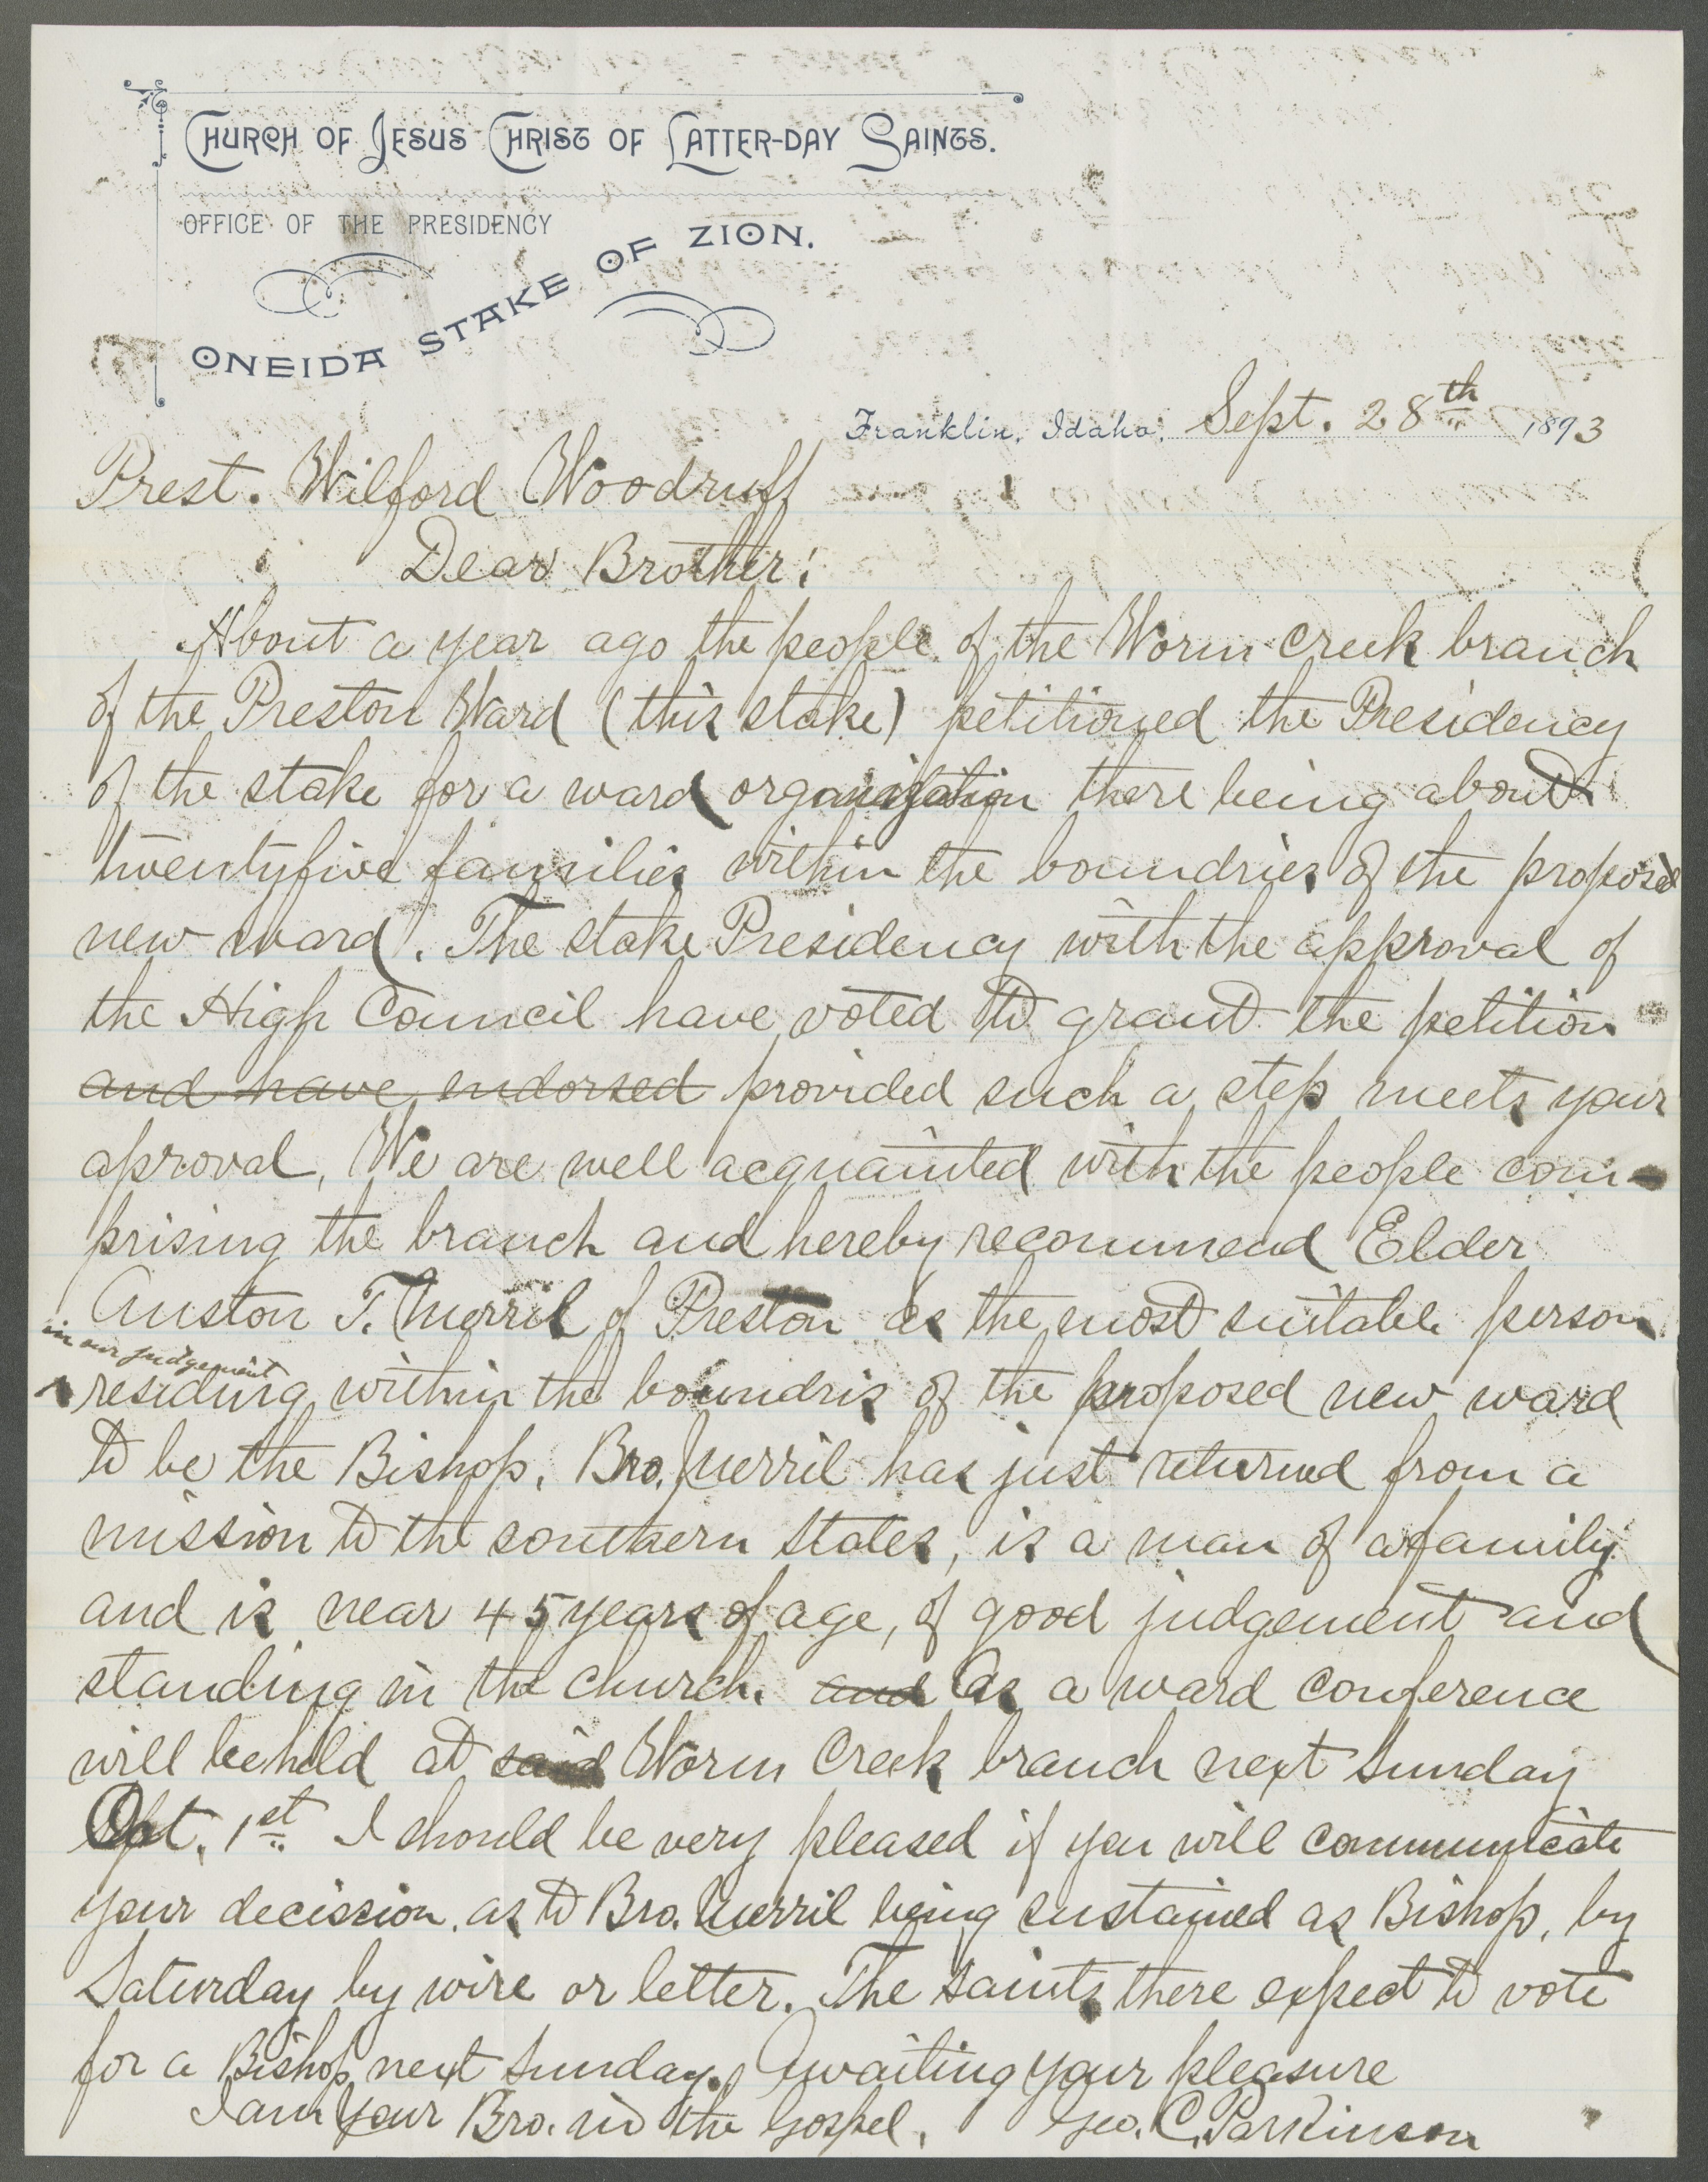 CHURCH OF JESUS CHRIST OF LATTER-DAY SAINTS.
OFFICE OF THE PRESIDENCY
ONEIDA STAKE OF ZION.
Franklin, Idaho, Sept. 28th 1893
Prest. Wilford Woodruff
Dear Brother:
About a year ago the people of the Worm Creek branch
of the Preston Ward (this stake) petitioned the Presidency
of the stake for a ward organization there being about
twentyfive families within the boundries of the proposed
new ward. The stake Presidency with the approval of
the High Council have voted to grant the petition
and have endorsed provided such a step meets your
aproval. We are well acquainted with the people com-
prising the branch and hereby recommend Elder
Auston T. Merril of Preston as the most suitable person
in our judgement
residing within the boundris of the proposed new ward
to be the Bishop. Bro. Merril has just returned from a
mission to the southern States, is a man of a family
and is near 45 years of age, of good judgement and
standing in the church. and As a ward conference
will be held at said Worm Creek branch next Sunday
Oct. 1st I should be very pleased if you will communicate
your decission as to Bro. Merril being sustained as Bishop, by
Saturday by wire or letter. The saints there expect to vote
for a Bishop next Sunday. Awaiting your pleasure
I am your Bro. in the Gospel, Geo. C. Parkinson